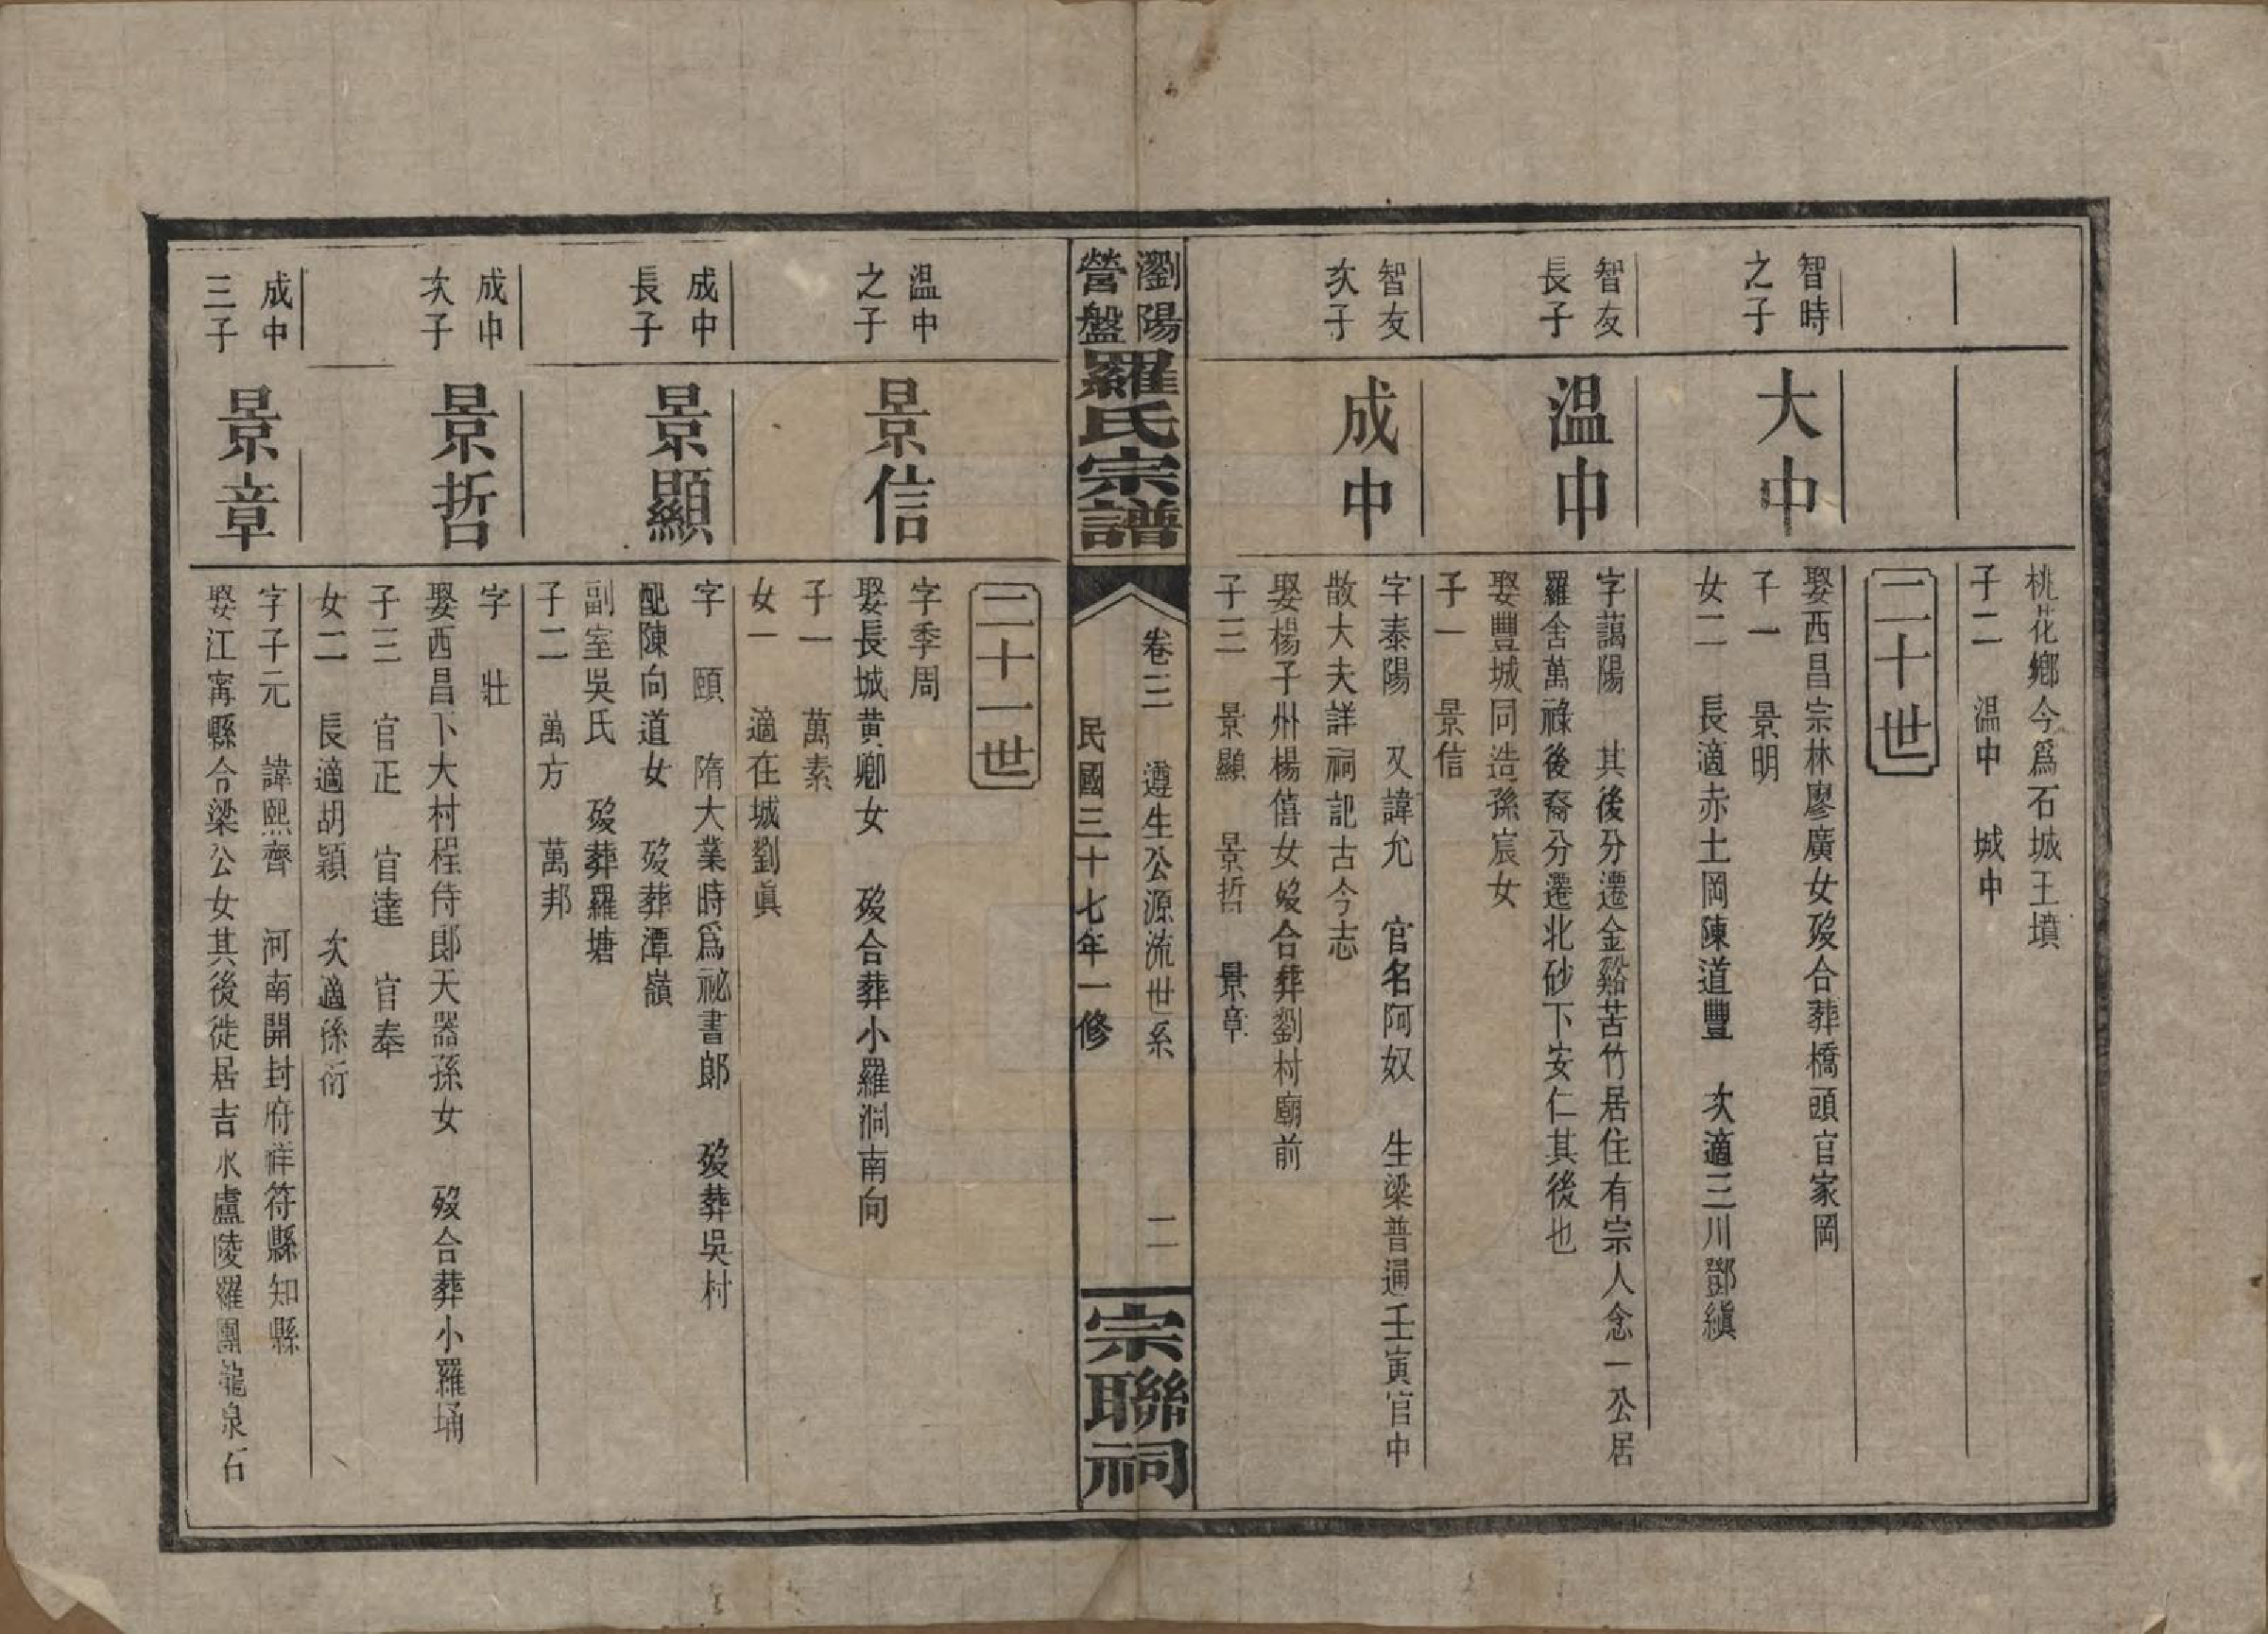 桃花鄉今爲石城王墳
子二　温中　城中
二十世
智時
之子
大中
娶西昌宗林廖廣女歿合葬橋頭官家岡
子一　景明
女二　長適赤土岡陳道豐　次適三川鄧縝
智友
長子
温中
字藹陽　其後分遷金谿苦竹居住有宗人念一公居
羅舍萬祿後裔分遷北砂下安仁其後也
娶豐城同造孫宸女
子一　景信
智友
次子
成中
字泰陽　又諱允　官名阿奴　生梁普通壬寅官中
散大夫詳祠記古今志
娶楊子州楊僖女歿合葬劉村廟前
子三　景顯　景哲　景章
瀏陽
營盤
羅氏宗譜
卷三　遵生公源流世系　二
民國三十七年一修
宗聯祠
二十一世
温中
之子
景信
字季周
娶長城黄卿女　歿合葬小羅洞南向
子一　萬素
女一　適在城劉眞
成中
長子
景顯
字　頤　隋大業時爲祕書郎　歿葬吳村
配陳向道女　歿葬潭嶺
副室吳氏　歿葬羅塘
子二　萬方　萬邦
成中
次子
景哲
字　壯
娶西昌下大村程侍郎天器孫女　歿合葬小羅埇
子三　官正　官達　官奉
女二　長適胡穎　次適孫衍
成中
三子
景章
字子元　諱熙齊　河南開封府祥符縣知縣
娶江寗縣合梁公女其後徙居吉水盧陵羅團龍泉石